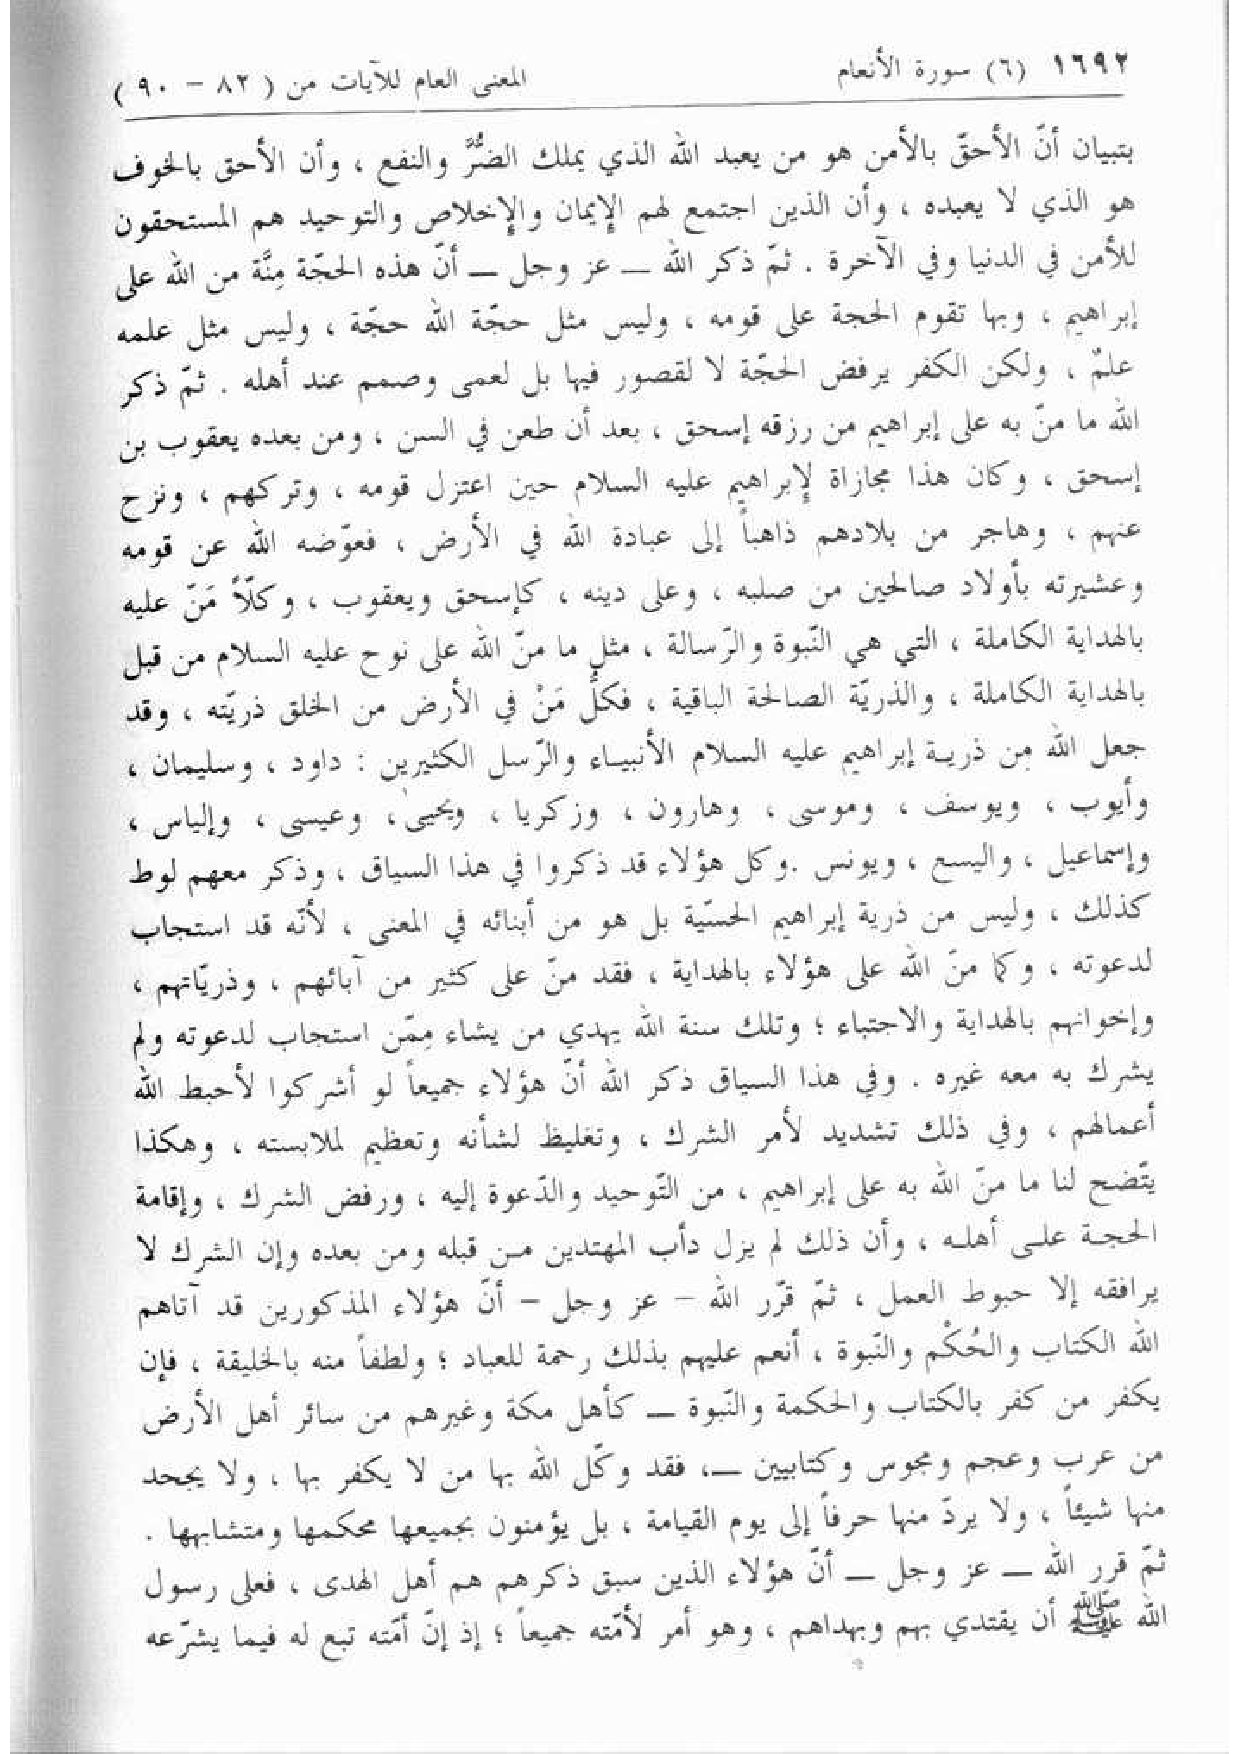 ١٦٩٢ (٦) سورة الأنعام المعنى العام للآيات من ( ٨٢ - ٩٠ )
بتبيان أنّ الأحقّ بالأمن هو من يعبد الله الذي يملك الضُّرَّ والنفع ، وأن الأحق بالخوف
هو الذي لا يعبده ، وأن الذين اجتمع لهم الإيمان والإخلاص والتوحيد هم المستحقون
للأمن في الدنيا وفي الآخرة . ثمّ ذكر الله ــ عز وجل ــ أنّ هذه الحجّة مِنَّة من الله على
إبراهيم ، وبها تقوم الحجة على قومه ، وليس مثل حجّة الله حجّة ، وليس مثل علمه
علمٌ ، ولكن الكفر يرفض الحجّة لا لقصور فيها بل لعمى وصمم عند أهله . ثمّ ذكر
الله ما منّ به على إبراهيم من رزقه إسحق ، بعد أن طعن في السن ، ومن بعده يعقوب بن
إسحق ، وكان هذا مجازاة لإبراهيم عليه السلام حين اعتزل قومه ، وتركهم ، ونزح
عنهم ، وهاجر من بلادهم ذاهباً إلى عبادة الله في الأرض ، فعوّضه الله عن قومه
وعشيرته بأولاد صالحين من صلبه ، وعلى دينه ، كإسحق ويعقوب ، وكلّاً مَنّ عليه
بالهداية الكاملة ، التي هي النّبوة والرّسالة ، مثل ما منّ الله على نوح عليه السلام من قبل
بالهداية الكاملة ، والذريّة الصالحة الباقية ، فكلُّ مَنْ في الأرض من الخلق ذريّته ، وقد
جعل الله من ذرية إبراهيم عليه السلام الأنبياء والرّسل الكثيرين : داود ، وسليمان ،
وأيوب ، ويوسف ، وموسى ، وهارون ، وزكريا ، ويحيى ، وعيسى ، وإلياس ،
وإسماعيل ، واليسع ، ويونس .وكل هؤلاء قد ذكروا في هذا السياق ، وذكر معهم لوط
كذلك ، وليس من ذرية إبراهيم الحسّية بل هو من أبنائه في المعنى ، لأنّه قد استجاب
لدعوته ، وكما منّ الله على هؤلاء بالهداية ، فقد منّ على كثير من آبائهم ، وذريّاتهم ،
وإخوانهم بالهداية والاجتباء ؛ وتلك سنة الله يهدي من يشاء مِمّن استجاب لدعوته ولم
يشرك به معه غيره . وفي هذا السياق ذكر الله أنّ هؤلاء جميعاً لو أشركوا لأحبط الله
أعمالهم ، وفي ذلك تشديد لأمر الشرك ، وتغليظ لشأنه وتعظيم لملابسته ، وهكذا
يتّضح لنا ما منّ الله به على إبراهيم ، من التّوحيد والدّعوة إليه ، ورفض الشرك ، وإقامة
الحجة على أهله ، وأن ذلك لم يزل دأب المهتدين من قبله ومن بعده وإن الشرك لا
يرافقه إلا حبوط العمل ، ثمّ قرّر الله - عز وجل - أنّ هؤلاء المذكورين قد آتاهم
الله الكتاب والحُكْم والنّبوة ، أنعم عليهم بذلك رحمة للعباد ؛ ولطفاً منه بالخليقة ، فإن
يكفر من كفر بالكتاب والحكمة والنّبوة ــ كأهل مكة وغيرهم من سائر أهل الأرض
من عرب وعجم ومجوس وكتابيين ــ، فقد وكّل الله بها من لا يكفر بها ، ولا يجحد
منها شيئاً ، ولا يردّ منها حرفاً إلى يوم القيامة ، بل يؤمنون بجميعها محكمها ومتشابهها .
ثمّ قرر الله ــ عز وجل ــ أنّ هؤلاء الذين سبق ذكرهم هم أهل الهدى ، فعلى رسول
الله ﷺ أن يقتدي بهم وبهداهم ، وهو أمر لأمّته جميعاً ؛ إذ إنّ أمّته تبع له فيما يشرّعه